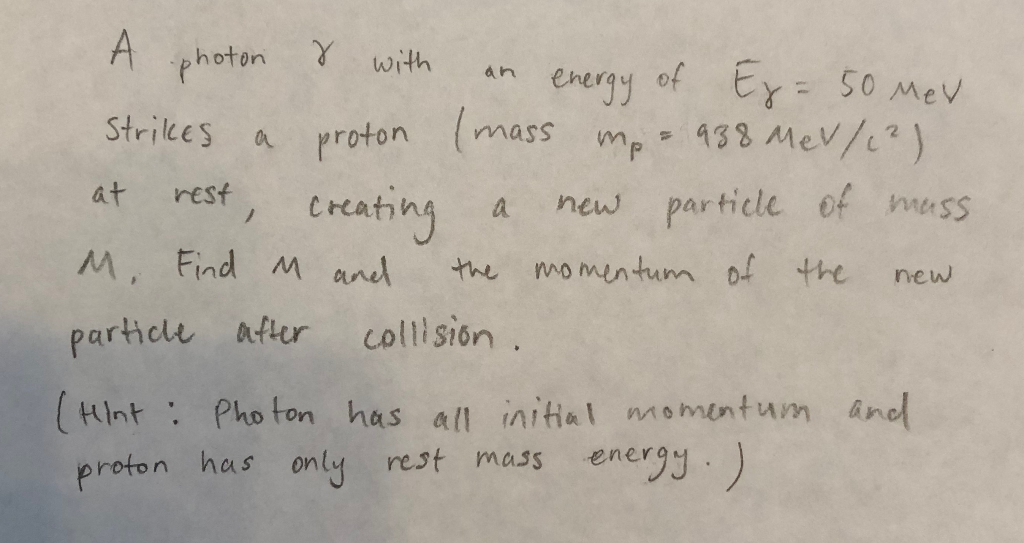 A photon γ with an energy of Eγ = 50 MeV
Strikes a proton (mass mp = 938 MeV/c²)
at rest, creating a new particle of mass
M. Find M and the momentum of the new
particle after collision.
(Hint : Photon has all initial momentum and
proton has only rest mass energy.)